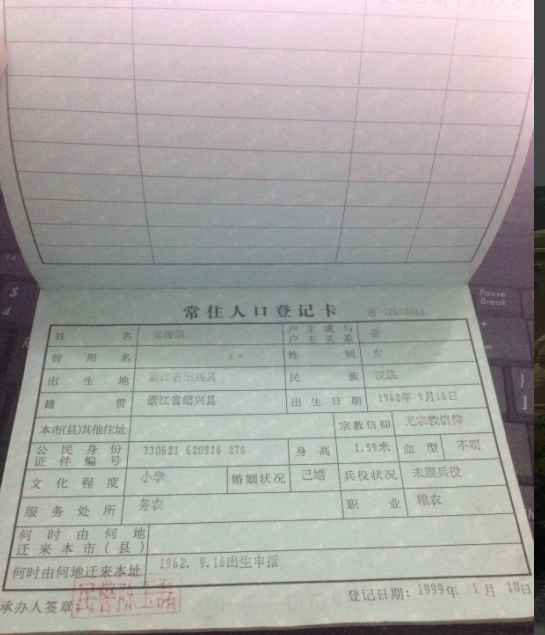 Pause
Break
常住人口登记卡
姓名
户主或与
户主关系 妻
曾用名
性别 女
出生地 浙江省绍兴县
民族 汉族
籍贯 浙江省绍兴县
出生日期 1962年9月16日
本市(县)其他住址
宗教信仰 无宗教信仰
公民身份
证件编号 330621 620916 276
身高 1.59米 血型 不明
文化程度 小学 婚姻状况 已婚 兵役状况 未服兵役
服务处所 务农
职业 粮农
何时由何地
迁来本市(县)
何时由何地迁来本址 1962. 9.16出生申报
承办人签章:
登记日期: 1999年 1月 10日